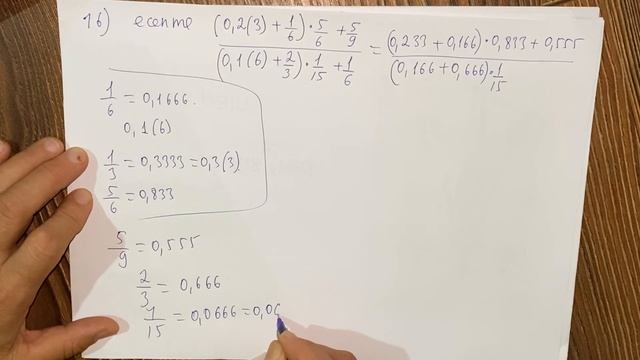 16) есепте (0,2(3) + 1/6) · 5/6 + 5/9 / (0,1(6) + 2/3) · 1/15 + 1/6 = (0,233 + 0,166) · 0,833 + 0,555 / (0,166 + 0,666) · 1/15
1/6 = 0,1666.
0,1(6)
1/3 = 0,3333 = 0,3(3)
5/6 = 0,833
5/9 = 0,555
2/3 = 0,666
1/15 = 0,0666 = 0,06